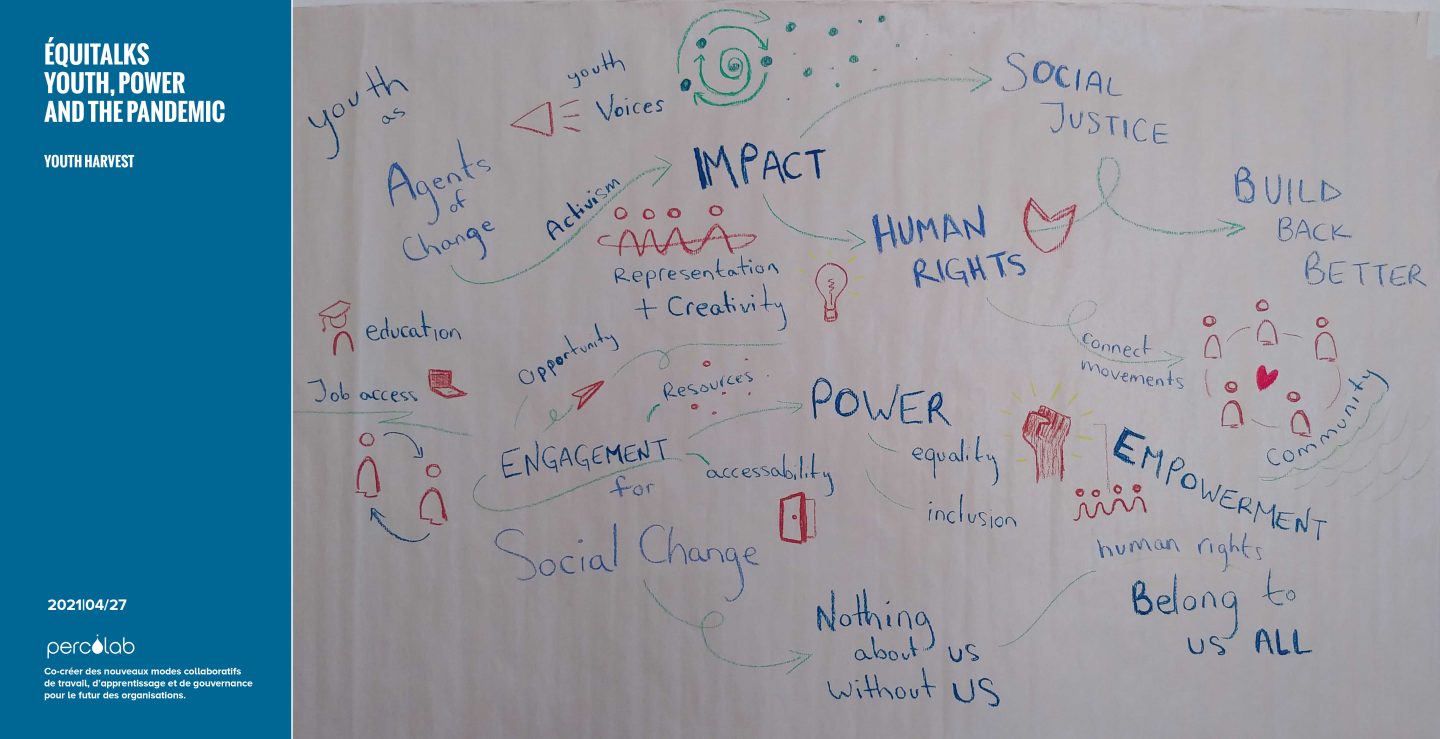 ÉQUITALKS
YOUTH, POWER
AND THE PANDEMIC
YOUTH HARVEST
2021|04/27
percolab
Co-créer des nouveaux modes collaboratifs
de travail, d'apprentissage et de gouvernance
pour le futur des organisations.
youth
as
Agents
of
Change
youth
Voices
Activism
IMPACT
Representation
+ Creativity
SOCIAL
JUSTICE
HUMAN
RIGHTS
BUILD
BACK
BETTER
education
Job access
Opportunity
Resources
ENGAGEMENT
for
Social Change
accessability
POWER
equality
inclusion
connect
movements
community
EMPOWERMENT
human rights
Belong to
us ALL
Nothing
about us
without US